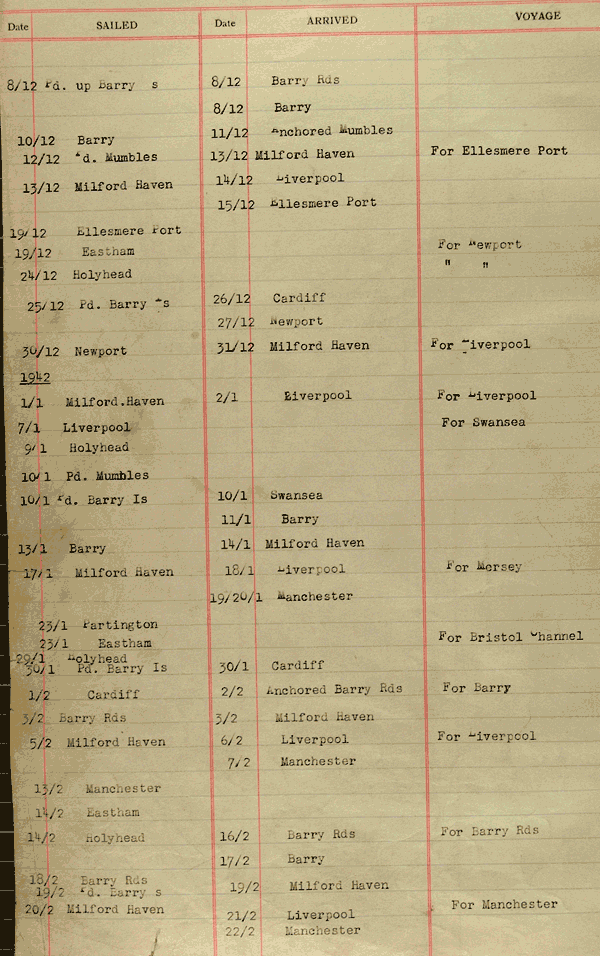 Date SAILED Date ARRIVED VOYAGE
8/12 Pd. up Barry s 8/12 Barry Rds
8/12 Barry
11/12 Anchored Mumbles
10/12 Barry
12/12 Pd. Mumbles 13/12 Milford Haven For Ellesmere Port
13/12 Milford Haven 14/12 Liverpool
15/12 Ellesmere Port
19/12 Ellesmere Port
19/12 Eastham For Newport
24/12 Holyhead " "
25/12 Pd. Barry Is 26/12 Cardiff
27/12 Newport
30/12 Newport 31/12 Milford Haven For Liverpool
1942
1/1 Milford.Haven 2/1 Liverpool For Liverpool
7/1 Liverpool For Swansea
9/1 Holyhead
10/1 Pd. Mumbles
10/1 Pd. Barry Is 10/1 Swansea
11/1 Barry
13/1 Barry 14/1 Milford Haven
17/1 Milford Haven 18/1 Liverpool For Mersey
19/20/1 Manchester
23/1 Partington
23/1 Eastham For Bristol Channel
29/1 Holyhead
30/1 Pd. Barry Is 30/1 Cardiff
1/2 Cardiff 2/2 Anchored Barry Rds For Barry
3/2 Barry Rds 3/2 Milford Haven
5/2 Milford Haven 6/2 Liverpool For Liverpool
7/2 Manchester
13/2 Manchester
14/2 Eastham
14/2 Holyhead 16/2 Barry Rds For Barry Rds
17/2 Barry
18/2 Barry Rds
19/2 Pd. Barry s 19/2 Milford Haven
20/2 Milford Haven 21/2 Liverpool For Manchester
22/2 Manchester